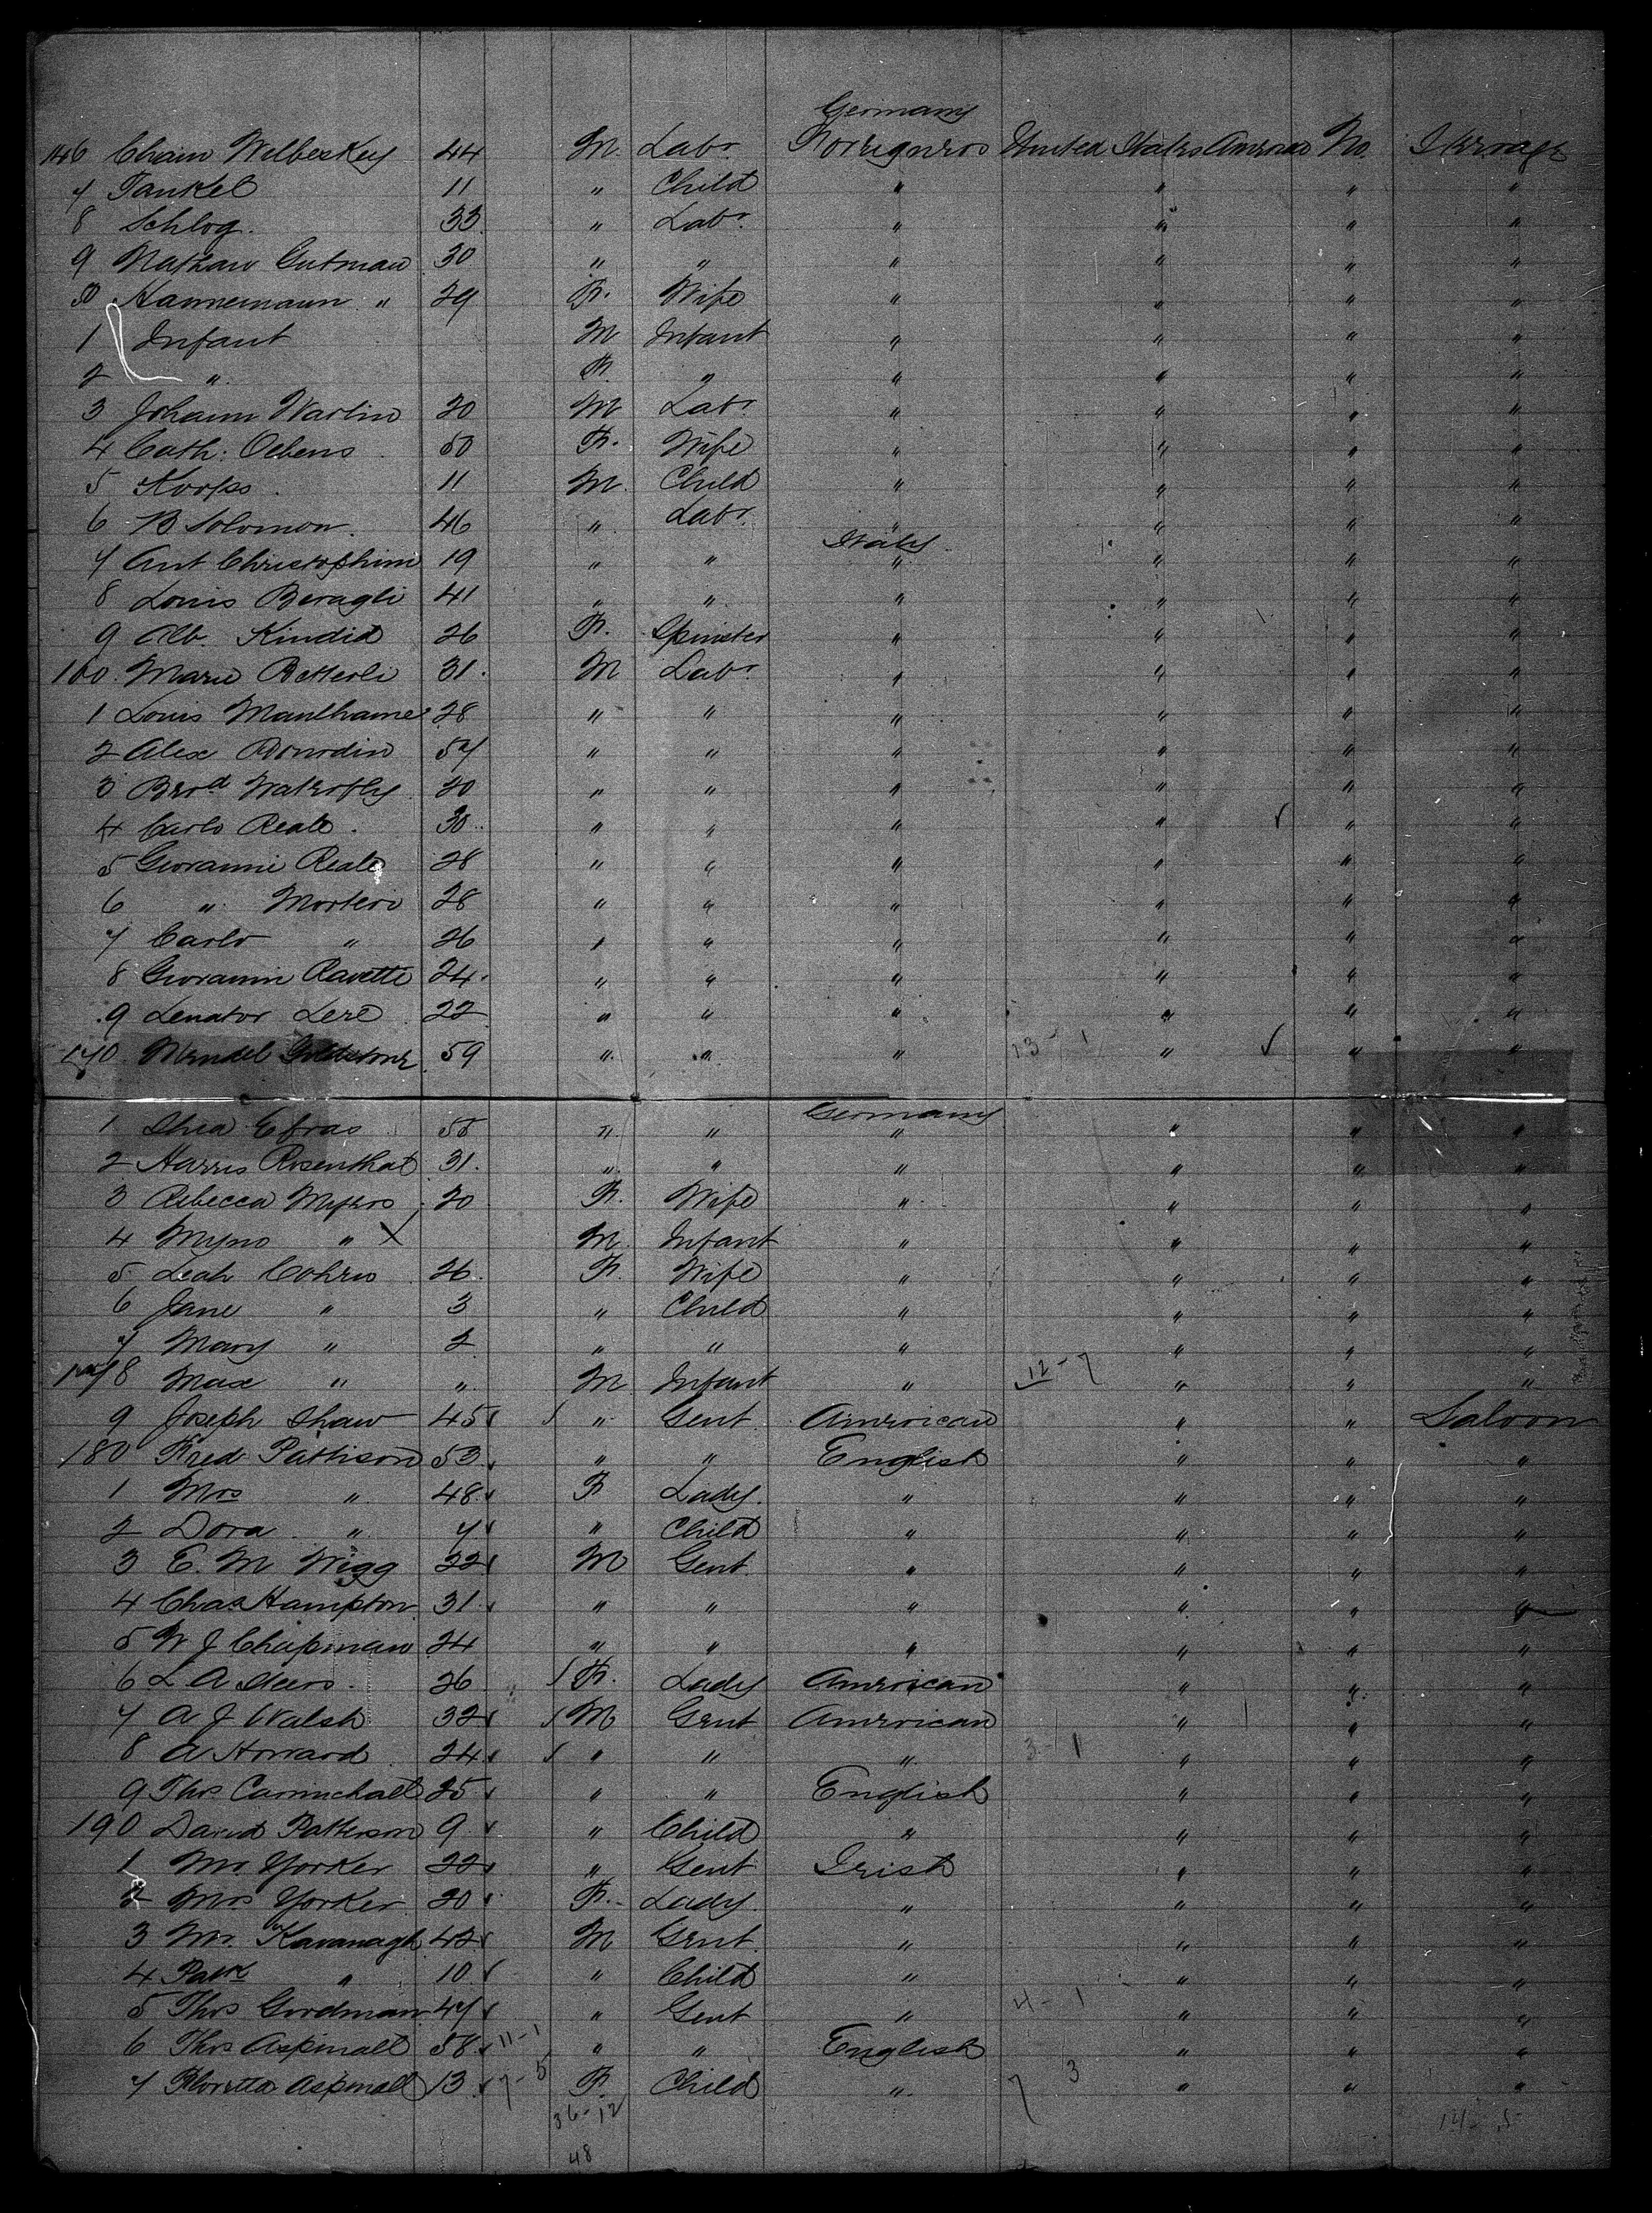 Germany
146 Chaim Welbeskey 44 M. Labr. Foreigners United States America No. Steerage
7 Jankel 11 " Child " " " "
8 Schlog. 33 " Labr. " " " "
9 Nathan Gutman 30 " " " " " "
50 Hannemann " 29 F. Wife " " " "
1 Infant M Infant " " " "
2 " F. " " " " "
3 Johann Warlin 20 M Labr. " " " "
4 Cath: Oebens 50 F. Wife " " " "
5 11 M. Child " " " "
6 B Solomon. 46 " Labr. " " " "
Italy
7 Ant Christophini 19 " " " " " "
8 Louis Beragli 41 " " " " " "
9 Alb. Kindid 26 F. Spinster " " " "
160. Marie Betterli 31. M Labr " " " "
1 Louis 28 " " " " " "
2 Alex Bourdin 57 " " " " " "
3 20 " " " " " "
4 Carlo Reale. 30 " " " " " "
5 Giovanni Reale 28 " " " " " "
6 " Morteri 28 " " " " " "
7 Carlo " 26 " " " " " "
8 Giovanni Ravette 24. " " " " " "
9 Senator Lere 22 " " " " " "
170 Mendel Goldstone 59 " " " 13-1 " " "
Germany
1 Shea Efras 58 " " " " " "
2 Harris Rosenthal 31. " " " " " "
3 Rebecca Myers 20 F. Wife " " " "
4 Myno " X M. Infant " " " "
5 Leah Cohen 26. F. Wife " " " "
6 Jane " 3 " Child " " " "
7 Mary " 2 " " " " " "
178 Max " " M Infant " 12-7 " " "
9 Joseph Shaw 45 " Gent American " " Saloon
180 Fred Pattison 53 " " English " " "
1 Mrs " 48 F Lady. " " " "
2 Dora " 7 " Child " " " "
3 E. M Wigg 22 M Gent. " " " "
4 Chas Hampton 31 " " " " " "
5 W J Chapman 24 " " " " " "
6 L A Steers. 26 F. Lady American " " "
7 A J Walsh 32 M Gent American " " "
8 A Howard 24 " " " 3-1 " " "
9 Thos Carmichael 25 " " English " " "
190 David Patterson 9 " Child " " " "
1 Mr Yorker 22 " Gent Irish " " "
2 Mrs Yorker 20 F. Lady. " " " "
3 Mr. Kavanagh 42 M Gent. " " " "
4 Patk " 10 " Child " " " "
5 Thos Goodman 47 " Gent " 4-1 " " "
6 Thos Aspinall 58 11-1 " " English " " "
7 Floretta Aspinall 13 7-5 F. Child " 7 3 " " "
36-12 14-5
48